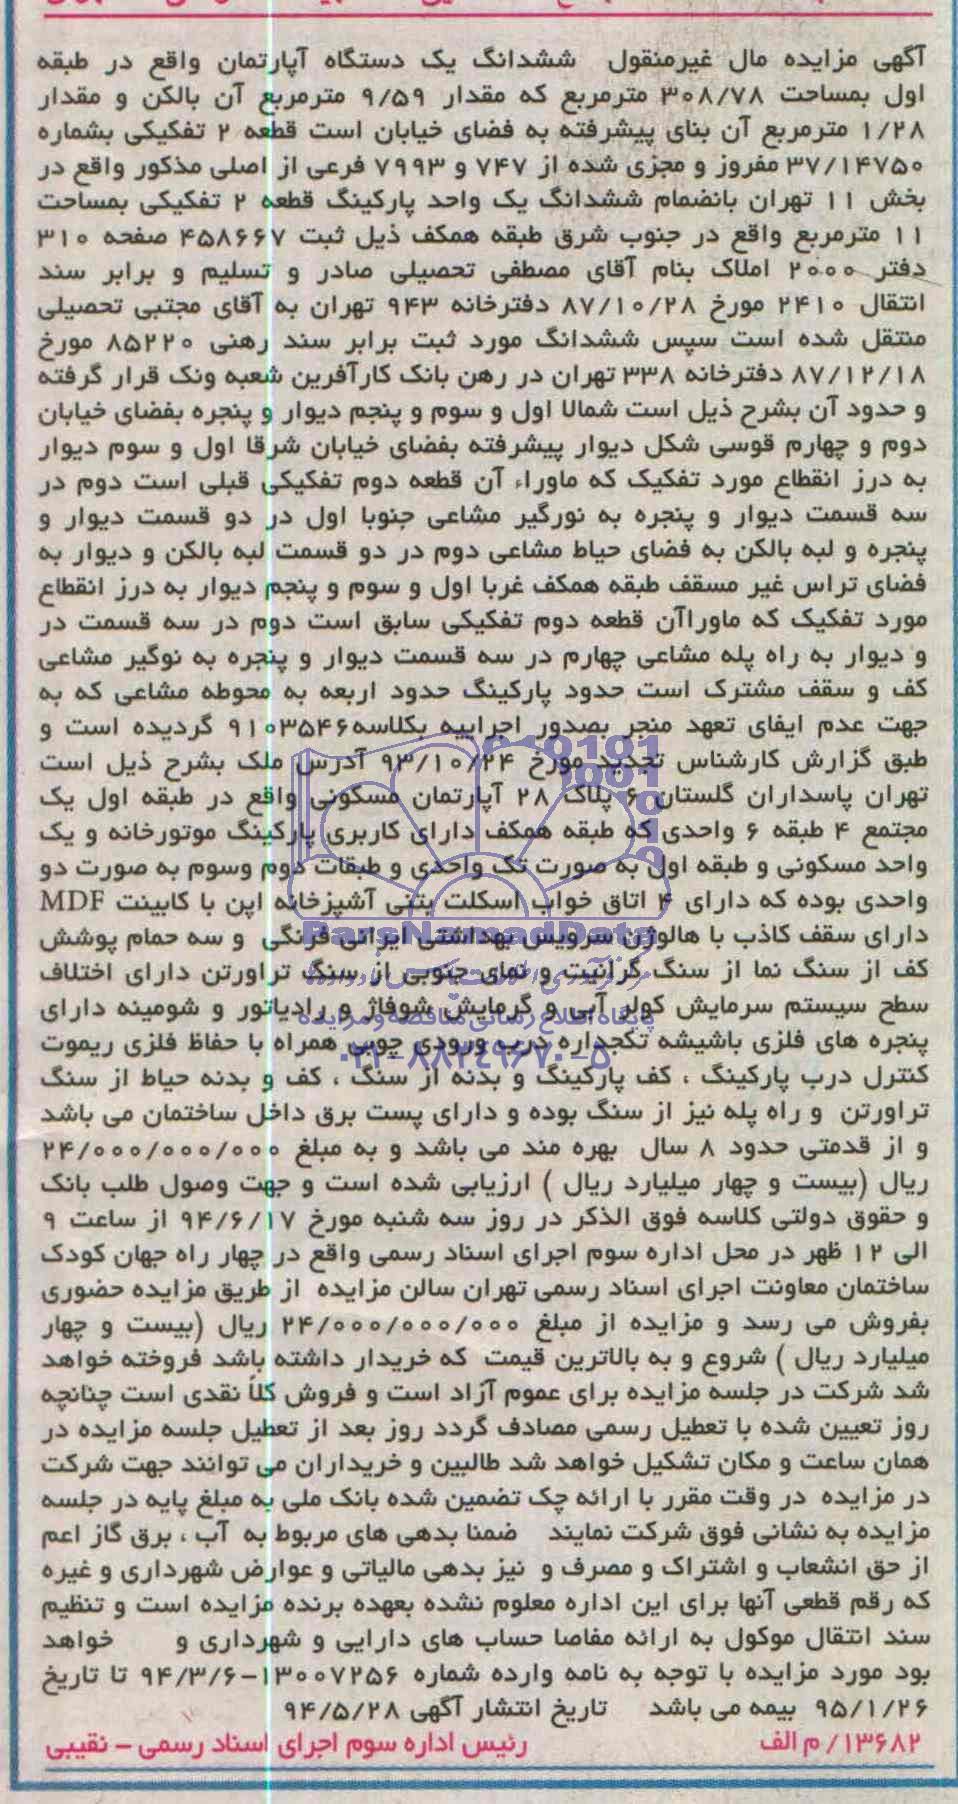 آگهی مزایده مال غیرمنقول ششدانگ یک دستگاه آپارتمان واقع در طبقه
اول بمساحت ۳۰۸/۷۸ مترمربع که مقدار ۹/۵۹ مترمربع آن بالکن و مقدار
۱/۲۸ مترمربع آن بنای پیشرفته به فضای خیابان است قطعه ۲ تفکیکی بشماره
۳۷/۱۴۷۵۰ مفروز و مجزی شده از ۷۴۷ و ۷۹۹۳ فرعی از اصلی مذکور واقع در
بخش ۱۱ تهران بانضمام ششدانگ یک واحد پارکینگ قطعه ۲ تفکیکی بمساحت
۱۱ مترمربع واقع در جنوب شرق طبقه همکف ذیل ثبت ۴۵۸۶۶۷ صفحه ۳۱۰
دفتر ۲۰۰۰ املاک بنام آقای مصطفی تحصیلی صادر و تسلیم و برابر سند
انتقال ۲۴۱۰ مورخ ۸۷/۱۰/۲۸ دفترخانه ۹۴۳ تهران به آقای مجتبی تحصیلی
منتقل شده است سپس ششدانگ مورد ثبت برابر سند رهنی ۸۵۲۲۰ مورخ
۸۷/۱۲/۱۸ دفترخانه ۳۳۸ تهران در رهن بانک کارآفرین شعبه ونک قرار گرفته
و حدود آن بشرح ذیل است شمالا اول و سوم و پنجم دیوار و پنجره بفضای خیابان
دوم و چهارم قوسی شکل دیوار پیشرفته بفضای خیابان شرقا اول و سوم دیوار
به درز انقطاع مورد تفکیک که ماوراء آن قطعه دوم تفکیکی قبلی است دوم در
سه قسمت دیوار و پنجره به نورگیر مشاعی جنوبا اول در دو قسمت دیوار و
پنجره و لبه بالکن به فضای حیاط مشاعی دوم در دو قسمت لبه بالکن و دیوار به
فضای تراس غیر مسقف طبقه همکف غربا اول و سوم و پنجم دیوار به درز انقطاع
مورد تفکیک که ماوراآن قطعه دوم تفکیکی سابق است دوم در سه قسمت در
و دیوار به راه پله مشاعی چهارم در سه قسمت دیوار و پنجره به نوگیر مشاعی
کف و سقف مشترک است حدود پارکینگ حدود اربعه به محوطه مشاعی که به
جهت عدم ایفای تعهد منجر بصدور اجراییه بکلاسه۹۱۰۳۵۴۶ گردیده است و
طبق گزارش کارشناس تجدید مورخ ۹۳/۱۰/۲۴ آدرس ملک بشرح ذیل است
تهران پاسداران گلستان ۶ پلاک ۲۸ آپارتمان مسکونی واقع در طبقه اول یک
مجتمع ۴ طبقه ۶ واحدی که طبقه همکف دارای کاربری پارکینگ موتورخانه و یک
واحد مسکونی و طبقه اول به صورت تک واحدی و طبقات دوم وسوم به صورت دو
واحدی بوده که دارای ۴ اتاق خواب اسکلت بتنی آشپزخانه اپن با کابینت MDF
دارای سقف کاذب با هالوژن سرویس بهداشتی ایرانی فرنگی و سه حمام پوشش
کف از سنگ نما از سنگ گرانیت و نمای جنوبی از سنگ تراورتن دارای اختلاف
سطح سیستم سرمایش کولر آبی و گرمایش شوفاژ و رادیاتور و شومینه دارای
پنجره های فلزی باشیشه تکجداره درب ورودی چوبی همراه با حفاظ فلزی ریموت
کنترل درب پارکینگ ، کف پارکینگ و بدنه از سنگ ، کف و بدنه حیاط از سنگ
تراورتن و راه پله نیز از سنگ بوده و دارای پست برق داخل ساختمان می باشد
و از قدمتی حدود ۸ سال بهره مند می باشد و به مبلغ ۲۴/۰۰۰/۰۰۰/۰۰۰
ریال (بیست و چهار میلیارد ریال ) ارزیابی شده است و جهت وصول طلب بانک
و حقوق دولتی کلاسه فوق الذکر در روز سه شنبه مورخ ۹۴/۶/۱۷ از ساعت ۹
الی ۱۲ ظهر در محل اداره سوم اجرای اسناد رسمی واقع در چهار راه جهان کودک
ساختمان معاونت اجرای اسناد رسمی تهران سالن مزایده از طریق مزایده حضوری
بفروش می رسد و مزایده از مبلغ ۲۴/۰۰۰/۰۰۰/۰۰۰ ریال (بیست و چهار
میلیارد ریال ) شروع و به بالاترین قیمت که خریدار داشته باشد فروخته خواهد
شد شرکت در جلسه مزایده برای عموم آزاد است و فروش کلاً نقدی است چنانچه
روز تعیین شده با تعطیل رسمی مصادف گردد روز بعد از تعطیل جلسه مزایده در
همان ساعت و مکان تشکیل خواهد شد طالبین و خریداران می توانند جهت شرکت
در مزایده در وقت مقرر با ارائه چک تضمین شده بانک ملی به مبلغ پایه در جلسه
مزایده به نشانی فوق شرکت نمایند ضمنا بدهی های مربوط به آب ، برق گاز اعم
از حق انشعاب و اشتراک و مصرف و نیز بدهی مالیاتی و عوارض شهرداری و غیره
که رقم قطعی آنها برای این اداره معلوم نشده بعهده برنده مزایده است و تنظیم
سند انتقال موکول به ارائه مفاصا حساب های دارایی و شهرداری و خواهد
بود مورد مزایده با توجه به نامه وارده شماره ۱۳۰۰۷۲۵۶-۹۴/۳/۶ تا تاریخ
۹۵/۱/۲۶ بیمه می باشد تاریخ انتشار آگهی ۹۴/۵/۲۸
۱۳۶۸۲/ م الف رئیس اداره سوم اجرای اسناد رسمی – نقیبی
ParsNamadData
پایگاه اطلاع رسانی مناقصه و مزایده
۰۲۱-۸۸۳۴۹۶۷۰-۵